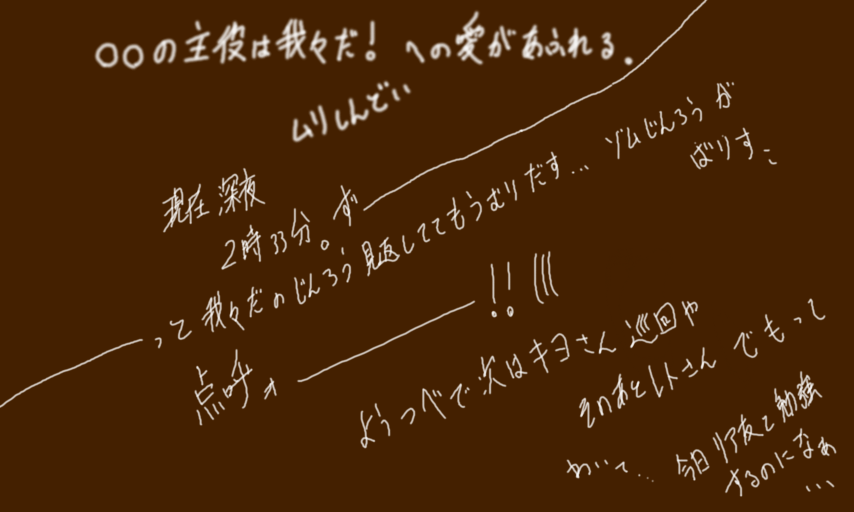 ○○の主役は我々だ！への愛があふれる。
ムリしんどい
現在 深夜
2時33分。ず――
っと 我々だのじんろう見返しててもうむりだす… ゾムじんろうが
ばりすこ
点呼ォ――!!
ようつべで次はキヨさん巡回や
そのあとレトさん でもって
ねいて… 今日リア友と勉強
するのになぁ
…